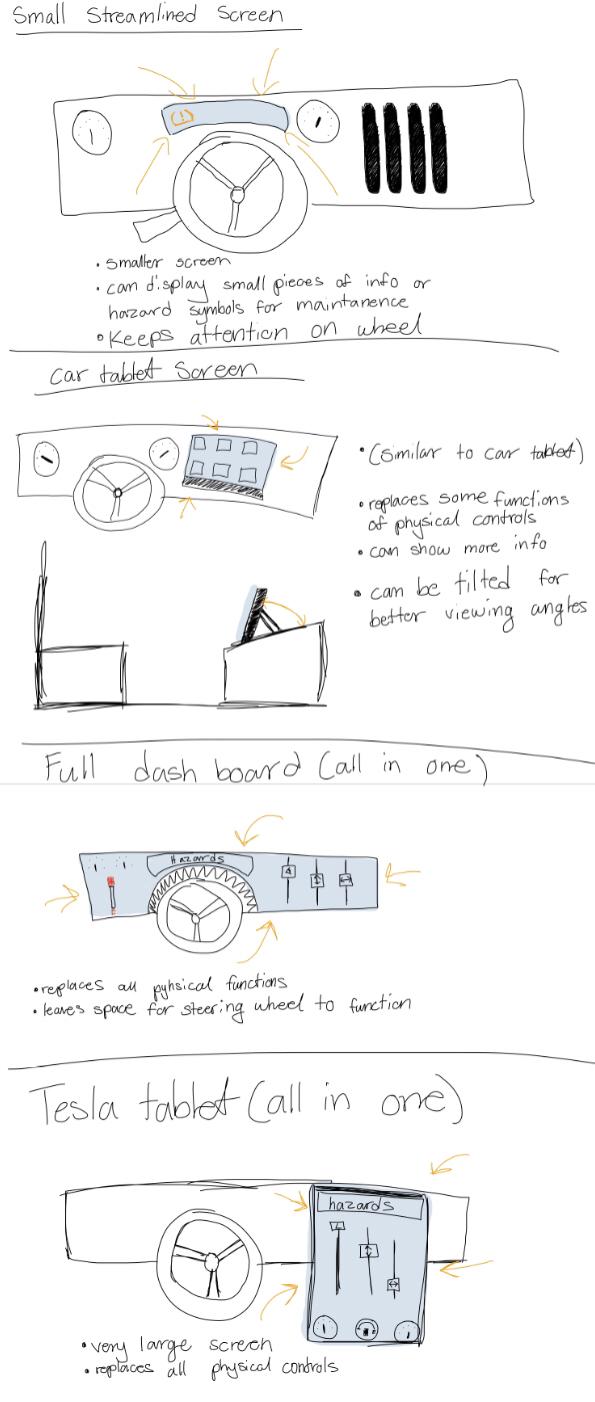 Small Streamlined Screen
(!)
• smaller screen
• can display small pieces of info or
hazard symbols for maintanence
• Keeps attention on wheel
Car tablet Screen
• (similar to car tablet)
• replaces some functions
of physical controls
• can show more info
• can be tilted for
better viewing angles
Full dash board (all in one)
Hazards
• replaces all pyhsical functions
• leaves space for steering wheel to function
Tesla tablet (all in one)
hazards
• very large screen
• replaces all physical controls